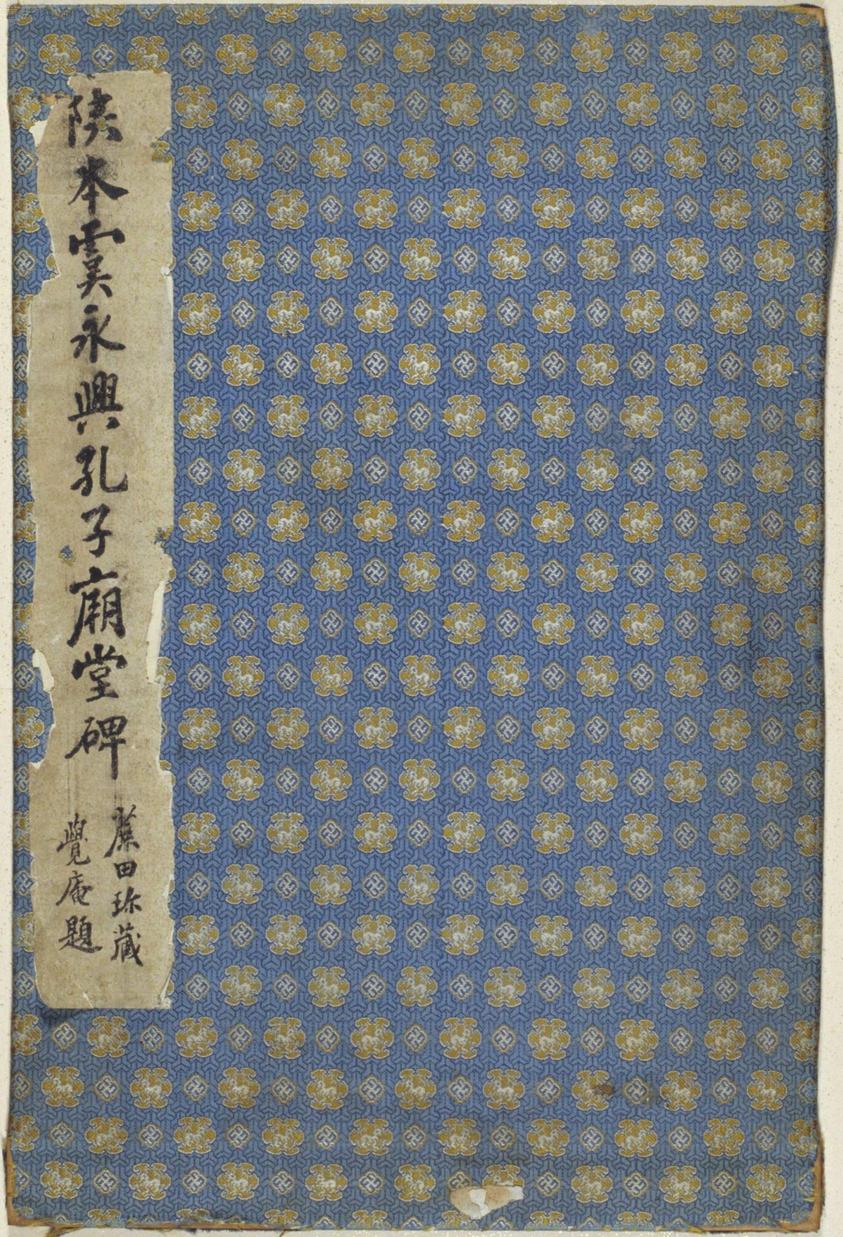 陝本虞永興孔子廟堂碑
田珎藏
覺庵題